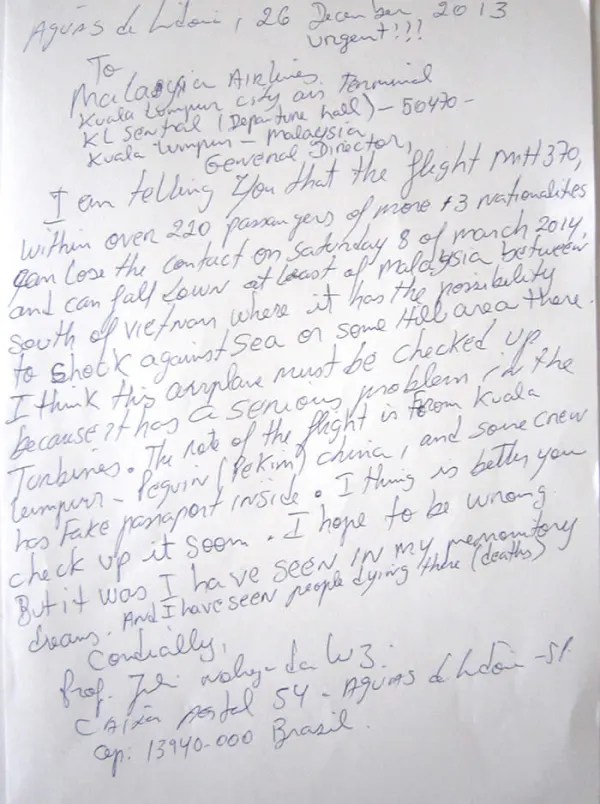 Aguas de Lindóia, 26 December 2013
urgent!!!
To
Malaysia Airlines.
Kuala Lumpur city air Terminal
KL Sentral (Departure hall) - 50470 -
Kuala Lumpur - malaysia
General Director,
I am telling you that the flight MH370,
within over 220 passangers of more 13 nationalites
can lose the contact on Saturday 8 of march 2014,
and can fall down at least of malaysia between
south of vietnam where it has the possibility
to shock against sea or some Hill area there.
I think this airplane must be checked up
because it has a serious problem in the
Turbines. The rote of the flight is From Kuala
Lumpur - Pequin (Pekim) china, and some crew
has Fake passaport inside. I thing is better you
check up it soom. I hope to be wrong.
But it was I have seen in my premonitory
dreams. And I have seen people dying there (deaths)
Cordially,
Prof. da Luz.
Caixa postal 54 - Aguas de Lindóia - SP.
cep: 13940-000 Brasil.